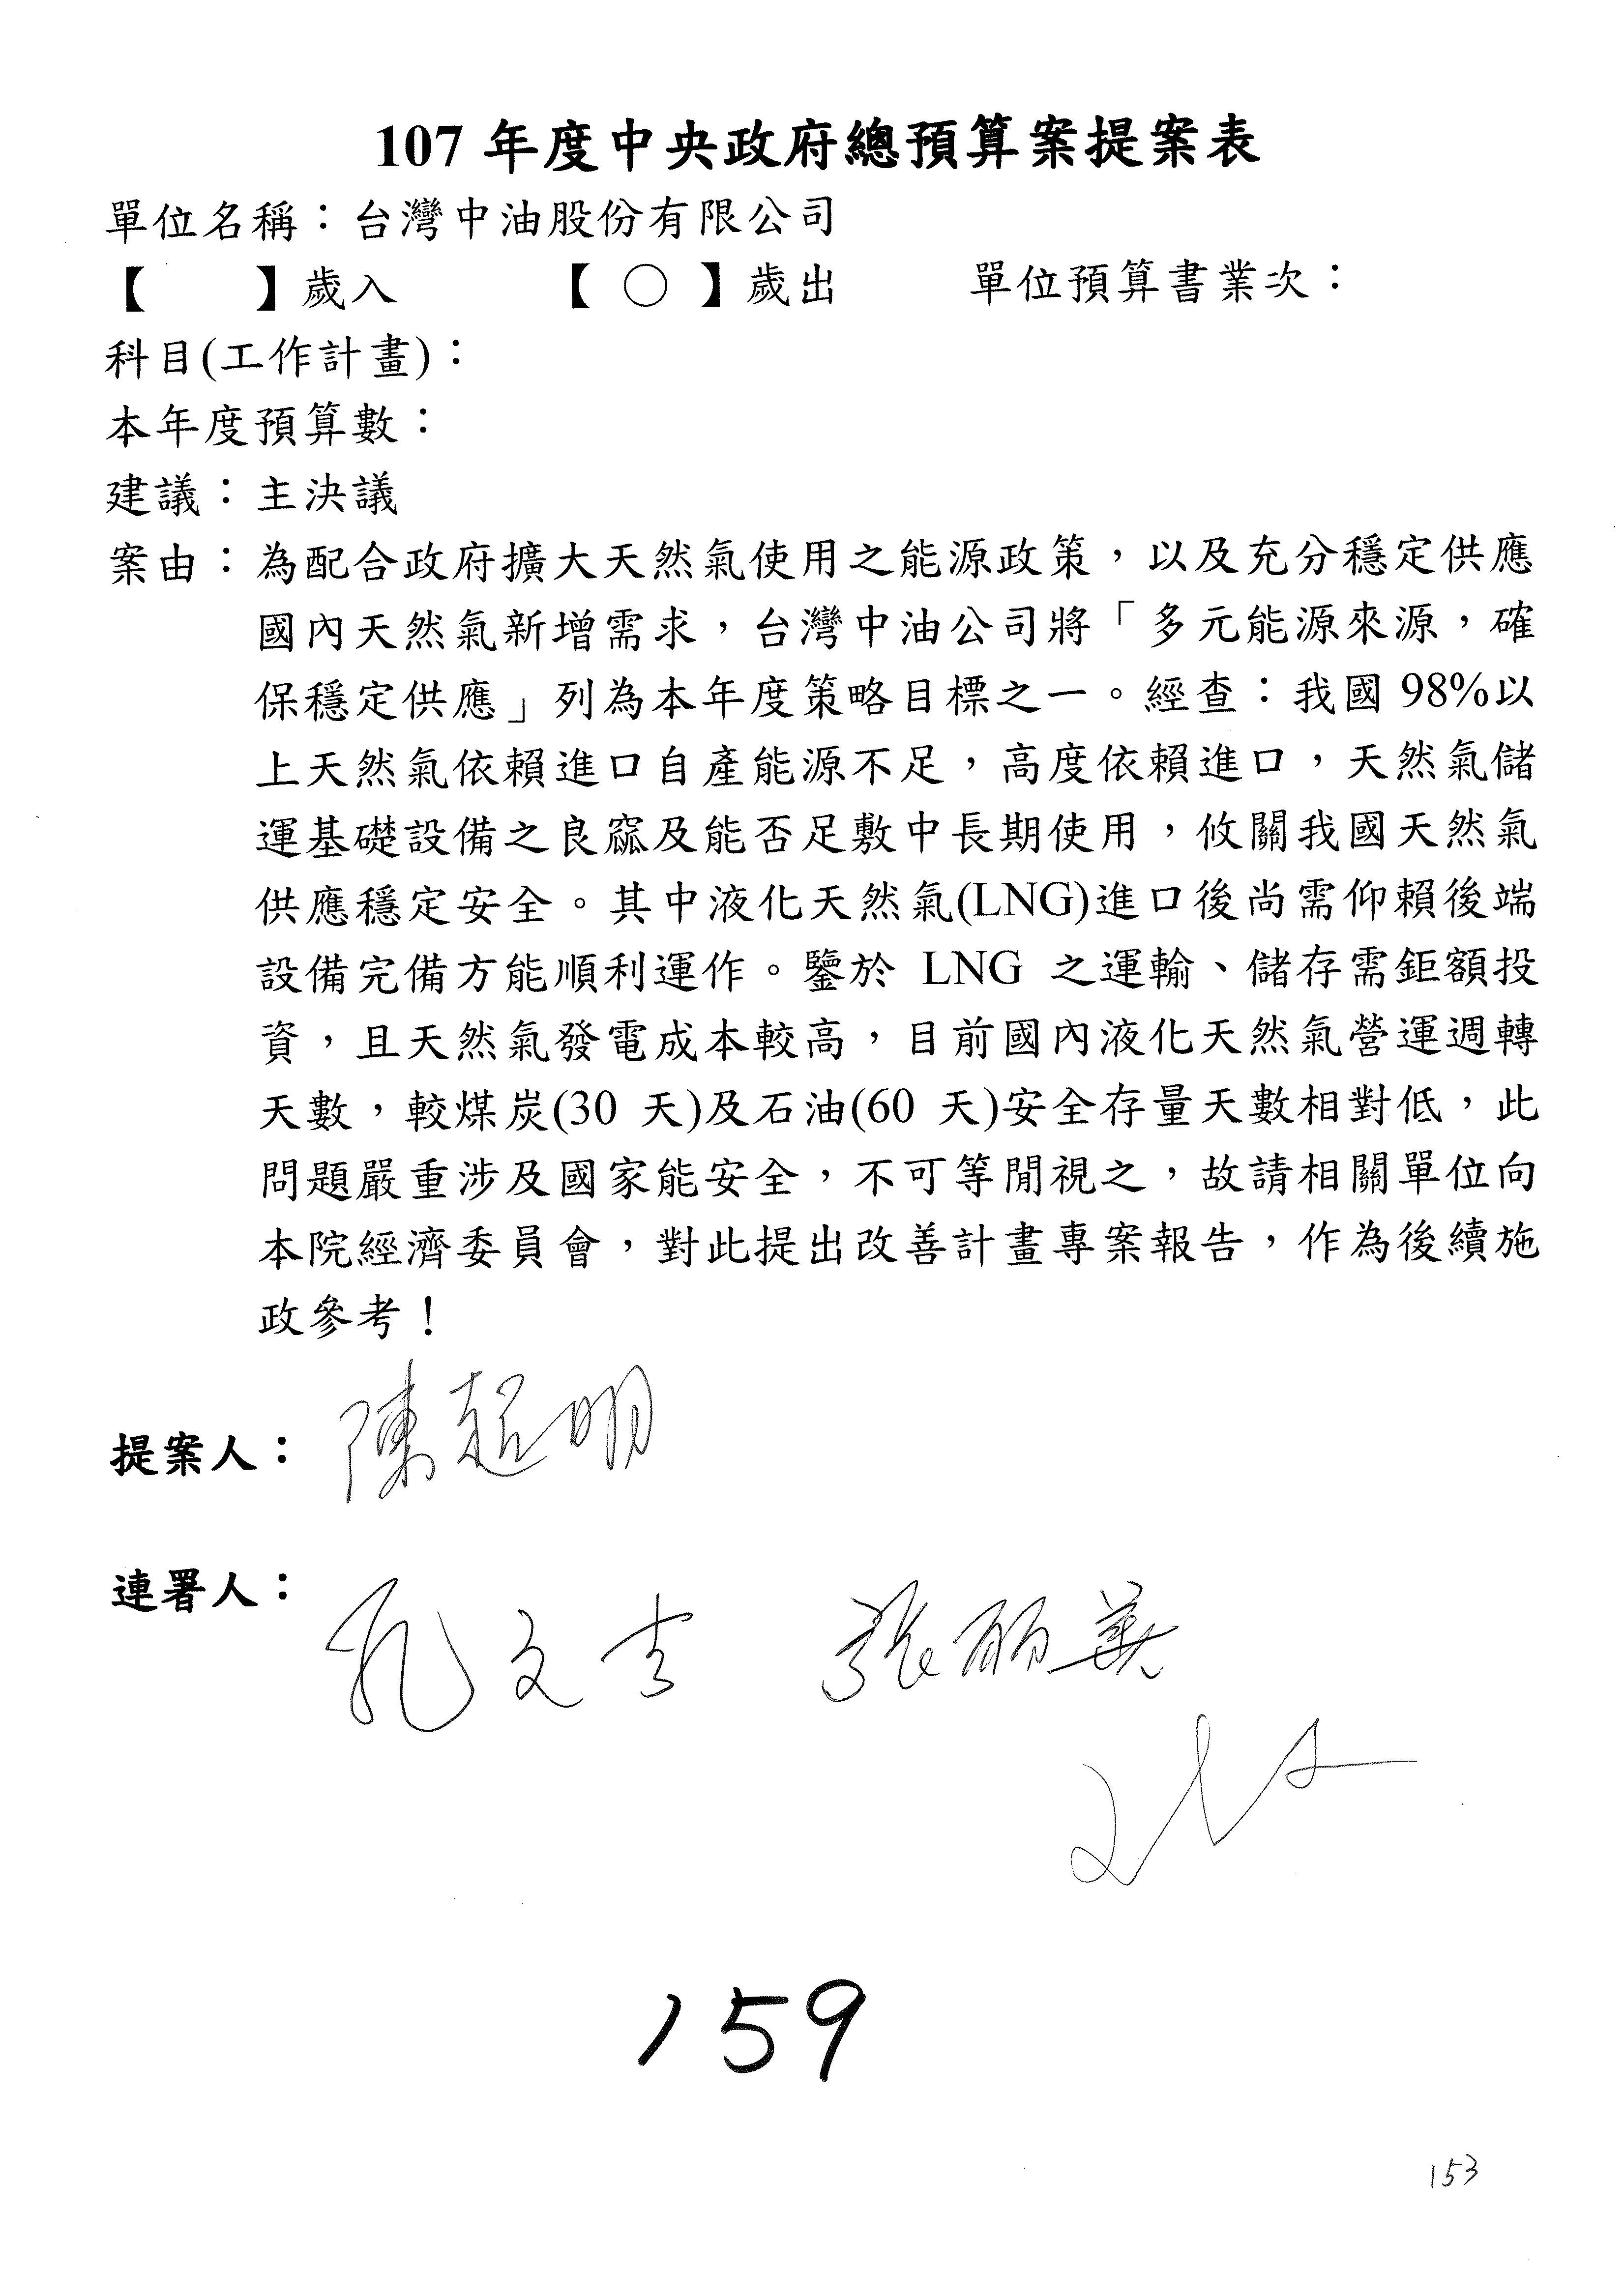 107 年度中央政府總預算案提案表
單位名稱：台灣中油股份有限公司
【　　】歲入　　【 ○ 】歲出　　單位預算書業次：
科目(工作計畫)：
本年度預算數：
建議：主決議
案由：為配合政府擴大天然氣使用之能源政策，以及充分穩定供應
國內天然氣新增需求，台灣中油公司將「多元能源來源，確
保穩定供應」列為本年度策略目標之一。經查：我國 98%以
上天然氣依賴進口自產能源不足，高度依賴進口，天然氣儲
運基礎設備之良窳及能否足敷中長期使用，攸關我國天然氣
供應穩定安全。其中液化天然氣(LNG)進口後尚需仰賴後端
設備完備方能順利運作。鑒於 LNG 之運輸、儲存需鉅額投
資，且天然氣發電成本較高，目前國內液化天然氣營運週轉
天數，較煤炭(30 天)及石油(60 天)安全存量天數相對低，此
問題嚴重涉及國家能安全，不可等閒視之，故請相關單位向
本院經濟委員會，對此提出改善計畫專案報告，作為後續施
政參考！
提案人：陳超明
連署人：孔文吉　張麗善
159
153